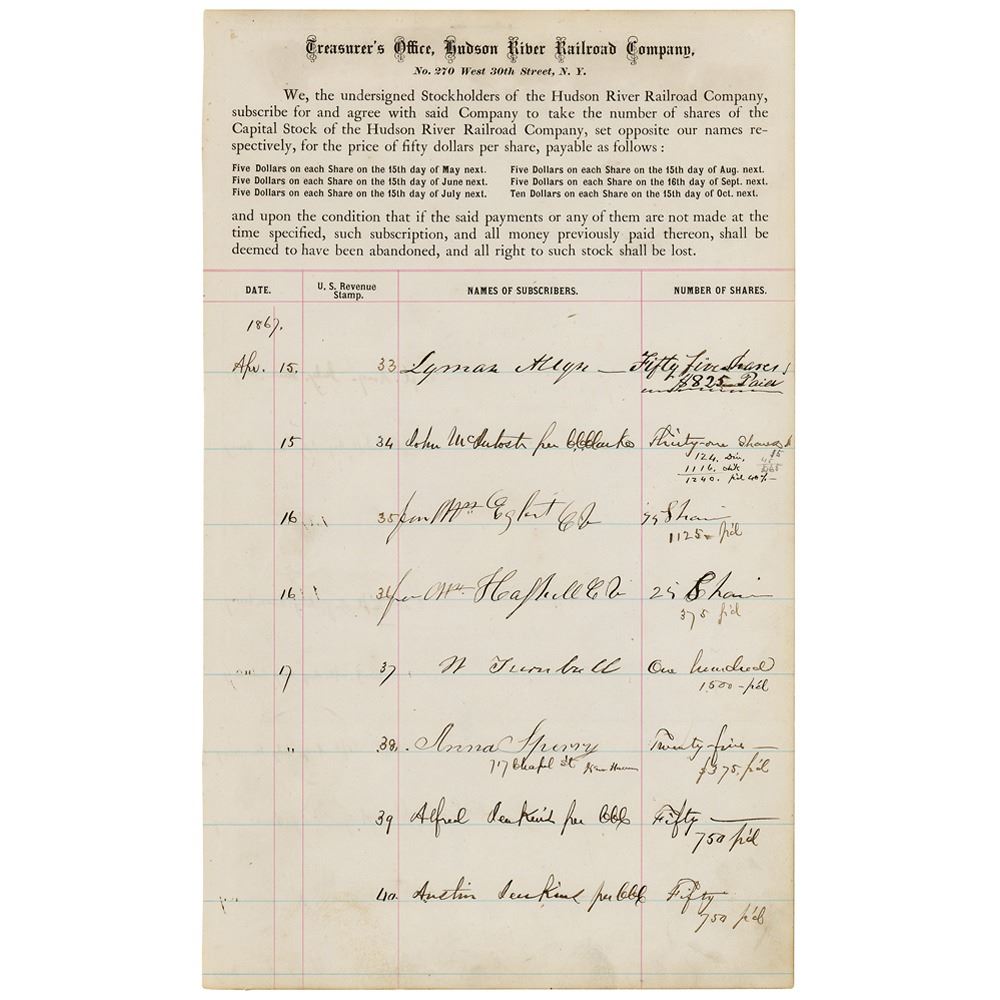 Treasurer's Office, Hudson River Railroad Company,
No. 270 West 30th Street, N. Y.
We, the undersigned Stockholders of the Hudson River Railroad Company,
subscribe for and agree with said Company to take the number of shares of the
Capital Stock of the Hudson River Railroad Company, set opposite our names re-
spectively, for the price of fifty dollars per share, payable as follows :
Five Dollars on each Share on the 15th day of May next. Five Dollars on each Share on the 15th day of Aug. next.
Five Dollars on each Share on the 15th day of June next. Five Dollars on each Share on the 16th day of Sept. next.
Five Dollars on each Share on the 15th day of July next. Ten Dollars on each Share on the 15th day of Oct. next.
and upon the condition that if the said payments or any of them are not made at the
time specified, such subscription, and all money previously paid thereon, shall be
deemed to have been abandoned, and all right to such stock shall be lost.
DATE. U. S. Revenue Stamp. NAMES OF SUBSCRIBERS. NUMBER OF SHARES.
1867.
Apr. 15. 33 Lyman Allyn — Fifty five shares
$825 Paid
15 34 John McIntosh per Thirty-one Shares
124. Div.
1116. chk
1240. p'd 40%
16 35 Wm 75 Shares
1125 p'd
16 36 Wm Haskell 25 Shares
375 p'd
17 37 W Turnbull One hundred
1500 - p'd
" 38. Anna Sperry Twenty-five —
717 Chapel St New Haven $375. p'd
39 Alfred Jenkins per Fifty —
750 p'd
40. Austin Jenkins per Fifty
750 p'd